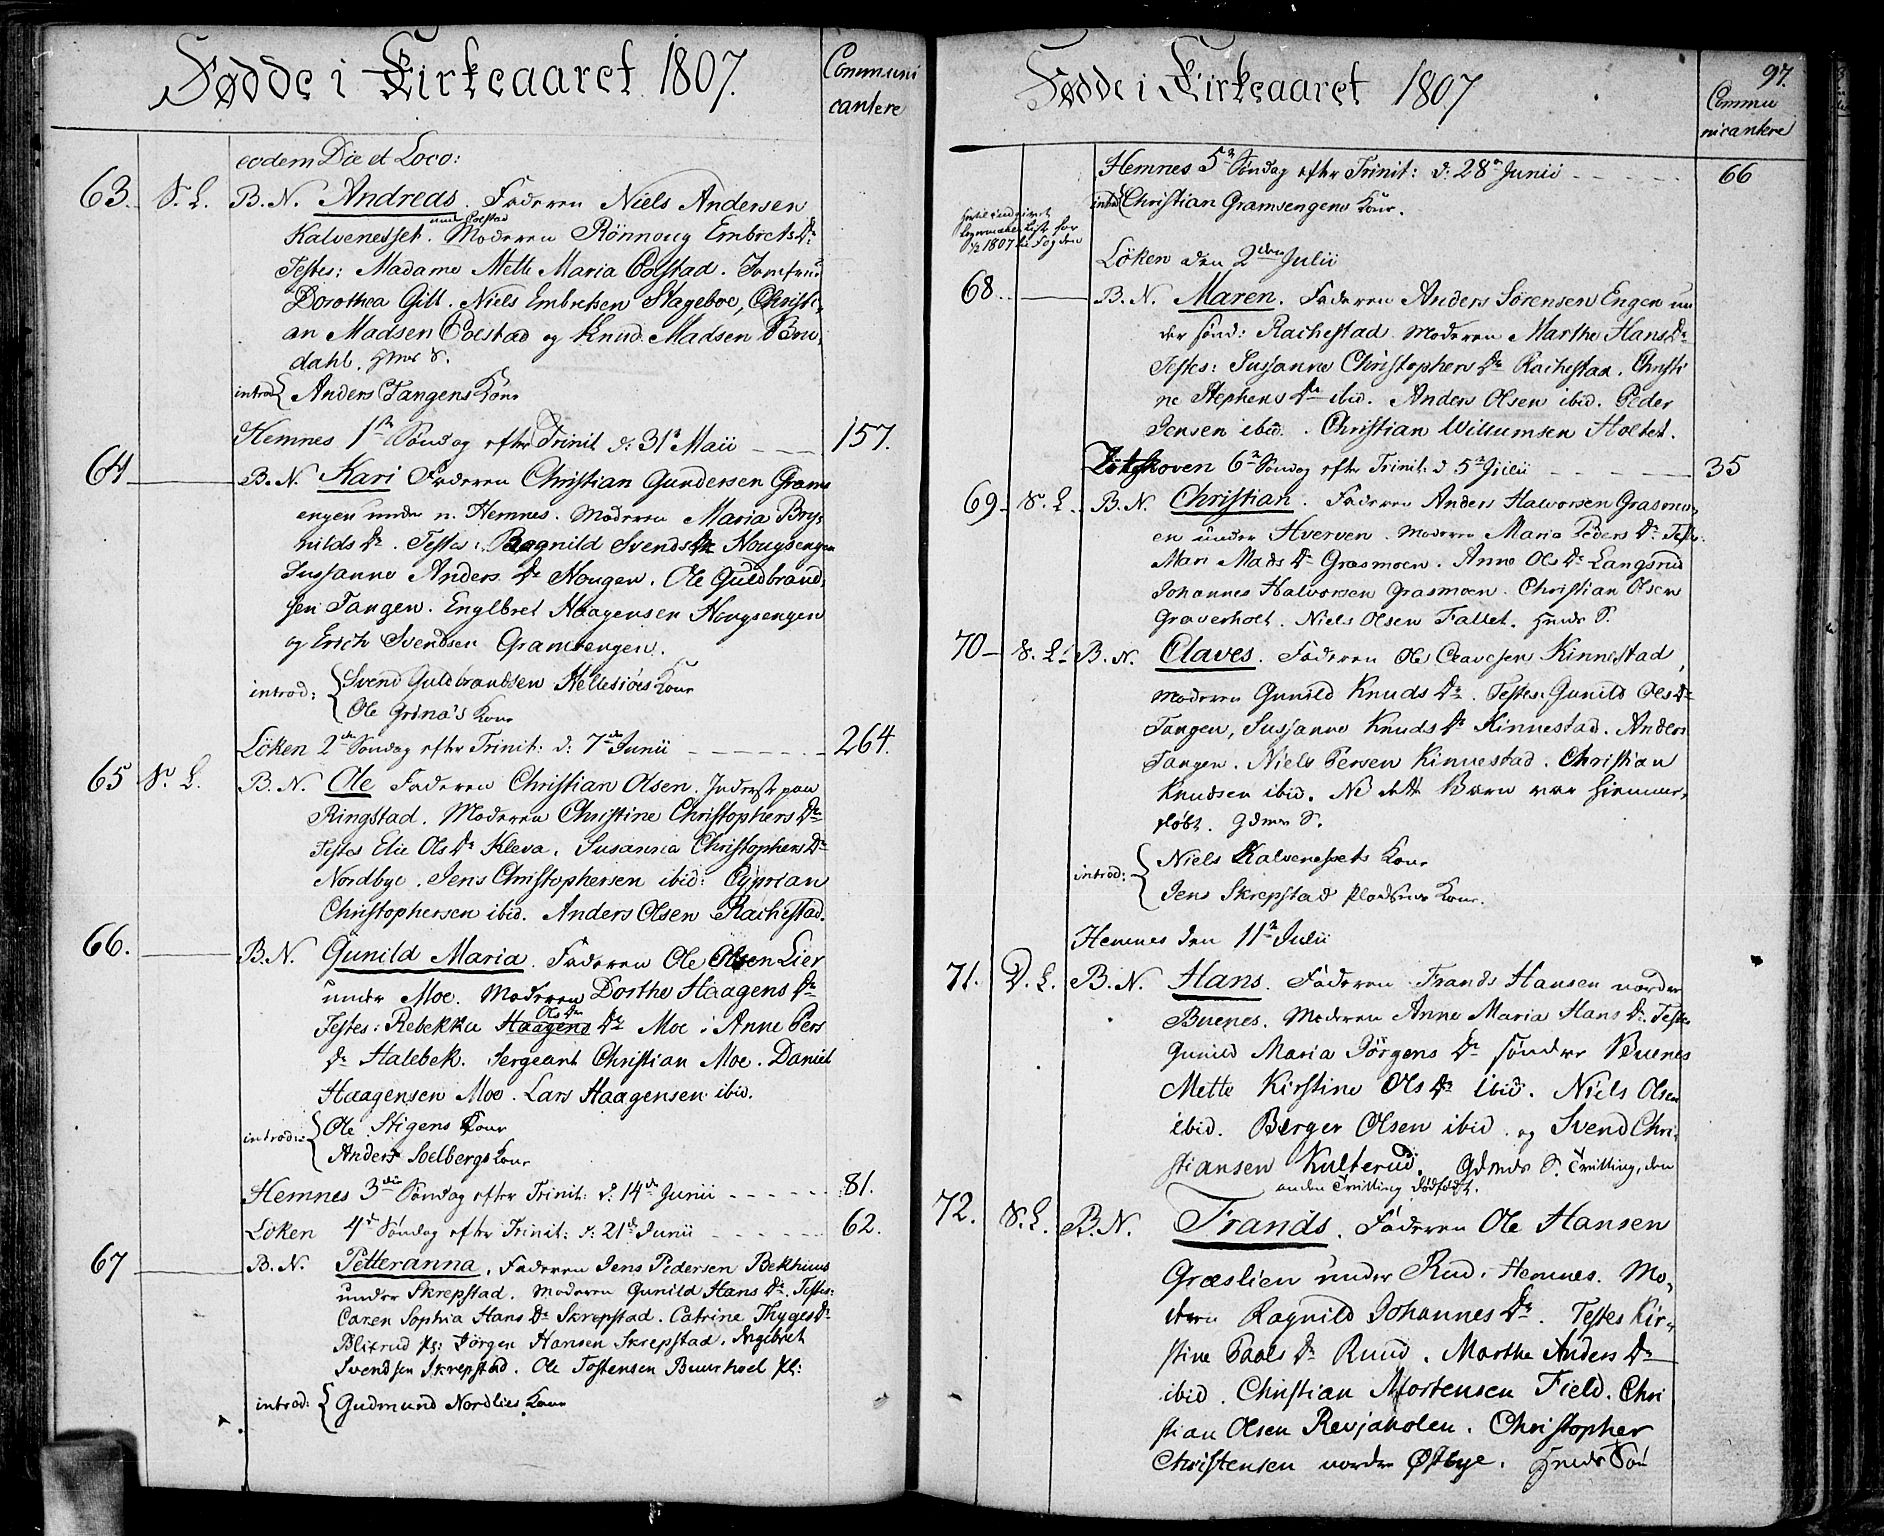 Fødde i Kirkeaaret 1807.
Communi
cantere
eodem Die et Loco:
63. S. L. B. N. Andreas. Faderen Niels Andersen
under Colstad
Kalvenesset. Moderen Rönnoug Embrets Dr
Testes: Madame Mette Maria Colstad. Jomfrue
Dorothea Gill. Niels Embretsen Stageboe, Christi-
an Madsen Colstad og Knud Madsen Bru
dahl.
introd { Anders Tangens Kone
Hemnes 1ste Søndag efter Trinit d: 31te Maii 157.
64 B. N. Kari Faderen Christian Gundersen Grams
engen under n. Hemnes. Moderen Maria Bøy-
nilds Dr. Testes: Ragnild Svends Dr Hougsengen
Susanne Anders Dr Hougen. Ole Guldbrand-
sen Tangen. Englbret Haagensen Hougsengen
og Erich Svendsen Gramsengen.
introd: { Svend Guldbrandsen Hellesiøes Kone
Ole Grina's Kone
Löken 2den Søndag efter Trinit: d: 7de Junii 264.
65 S. L. B. N. Ole Faderen Christian Olsen. Inderst paa
Ringstad. Moderen Christine Christophers Dr
Testes Elie Ols Dr Kleva. Susanna Christophers Dr
Nordbye. Jens Christophersen ibid: Cyprian
Christophersen ibid. Anders Olsen Rachestad.
66. B. N. Gunild Maria. Faderen Ole Olsen Lier
under Moe. Moderen Dorthe Haagens Dr
Ols Dr
Testes: Rebekka Haagens Dr Moe. Anne Pers
Dr Halebek. Sergeant Christian Moe. Daniel
Haagensen Moe. Lars Haagensen ibid.
introd: { Ole Stigens Kone
Anders Soelbergs Kone
Hemnes 3die Søndag efter Trinit: d: 14de Junii 81.
Löken 4de Søndag efter Trinit: d: 21de Junii 62.
67 B. N. Petteranna. Faderen Jens Pedersen Bekhuus
under Skrepstad. Moderen Gunild Hans Dr. Testes:
Caren Sophia Hans Dr Skrepstad. Catrine Thyges Dr
Blixrud pl: Jörgen Hansen Skrepstad. Engebret
Svendsen Skrepstad. Ole Tostensen Buurhoel pl:
introd: { Gudmund Nordlies Kone
Fødde i Kirkeaaret 1807
97.
Commu
nicantere
Hemnes 5te Søndag efter Trinit: d: 28de Junii 66
introd { Christian Gramsengens Kone.
1807 til Fogden
Löken den 2den Julii
68. B. N. Maren. Faderen Anders Sörensen Engen un
der sönd: Rachestad. Moderen Marthe Hans Dr
Testes: Susanne Christophers Dr Rachestad. Christi
ne Stephens Dr ibid. Anders Olsen ibid. Peder
Jensen ibid. Christian Willumsen Holtet.
6te Søndag efter Trinit: d 5te Julii 35
69. S. L. B. N. Christian. Faderen Anders Halvorsen Grasmo-
en under Hverven. Moderen Maria Peders Dr Testes:
Mari Mads Dr Grasmoen. Anne Ols Dr Langsrud
Johannes Halvorsen Grasmoen. Christian Olsen
Graverholt. Niels Olsen Fallet.
70 S. L. B. N. Claves. Faderen Ole Clavesen Kinnestad,
Moderen Gunild Knuds Dr. Testes: Gunild Ols Dr
Tangen, Susanne Knuds Dr Kinnestad. Anders
Tangen. Niels Persen Kinnestad. Christian
Knudsen ibid. NB dette Barn var hiemme-
døbt.
introd: { Niels Kalvenessets Kone
Jens Skrepstad Pladsens Kone.
Hemnes den 11te Julii
71. D. L. B. N. Hans. Faderen Frands Hansen nordre
Buenes. Moderen Anne Maria Hans Dr. Testes
Gunild Maria Jörgens Dr söndre Buenes
Mette Kirstine Ols Dr ibid. Niels Olsen
ibid. Berger Olsen ibid. og Svend Chri-
stiansen Kulterud. Tvilling, den
anden Tvilling dödfödt.
72. S. L. B. N. Frands. Faderen Ole Hansen
Græslien under Rud i Hemnes. Mo-
deren Ragnild Johannes Dr. Testes Kir-
stine Paals Dr Ruud. Marthe Anders Dr
ibid. Christian Mortensen Field. Chri
stian Olsen Revjaholen. Christopher
Christensen nordre Østbye.